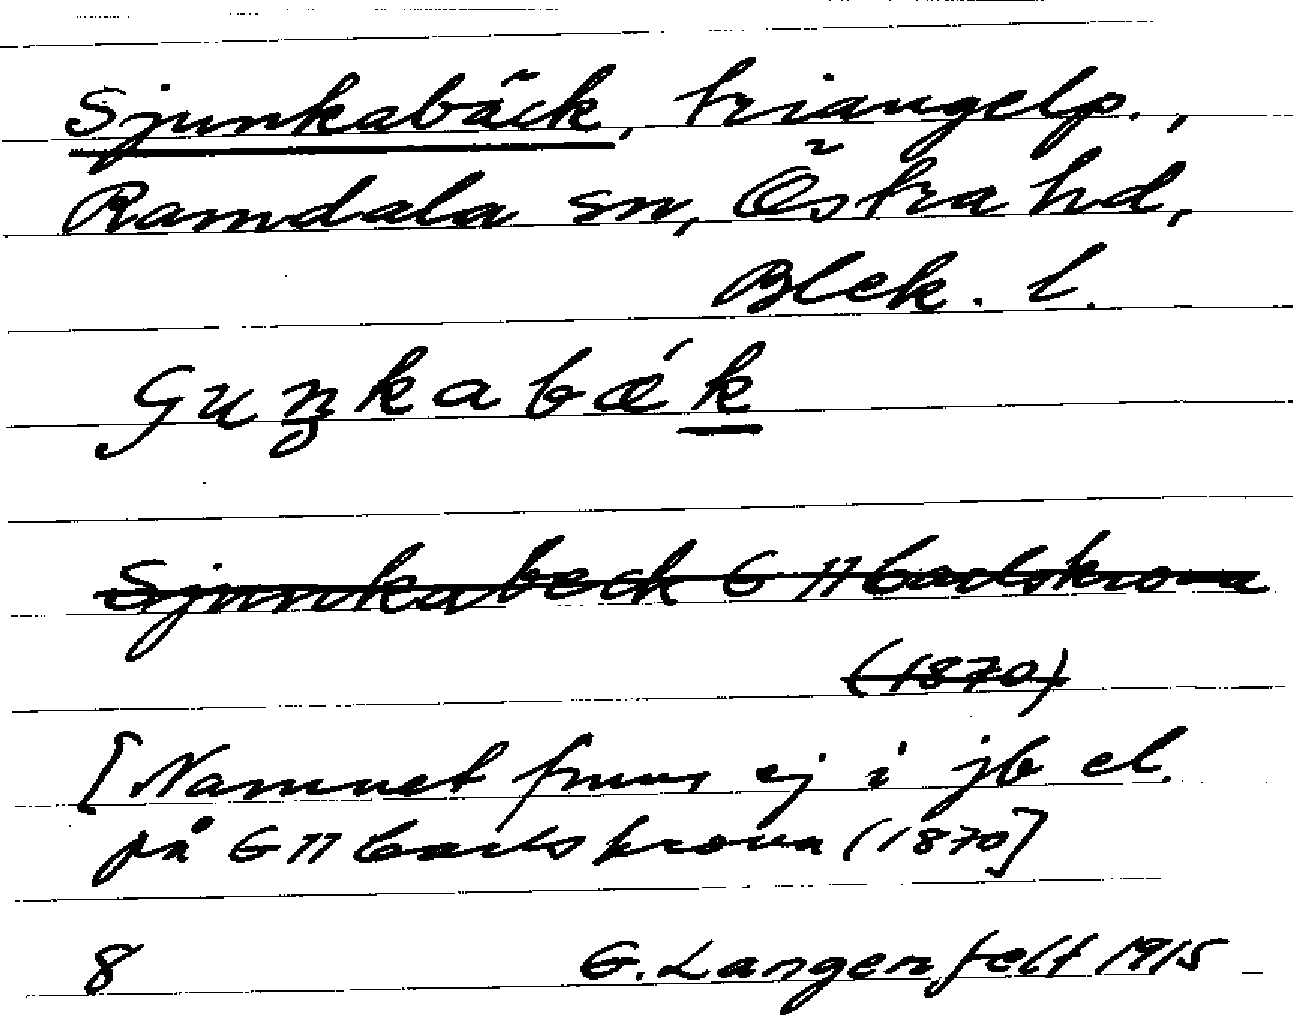 Sjunkabäck, triangelp.,
Ramdala sn, Östra hd,
Blek. l.
Sjunkabeck G 11 Carlskrona
(1870)
[Namnet finns ej i jb el.
på G 11 Carlskrona (1870]
8 G. Langenfelt 1915